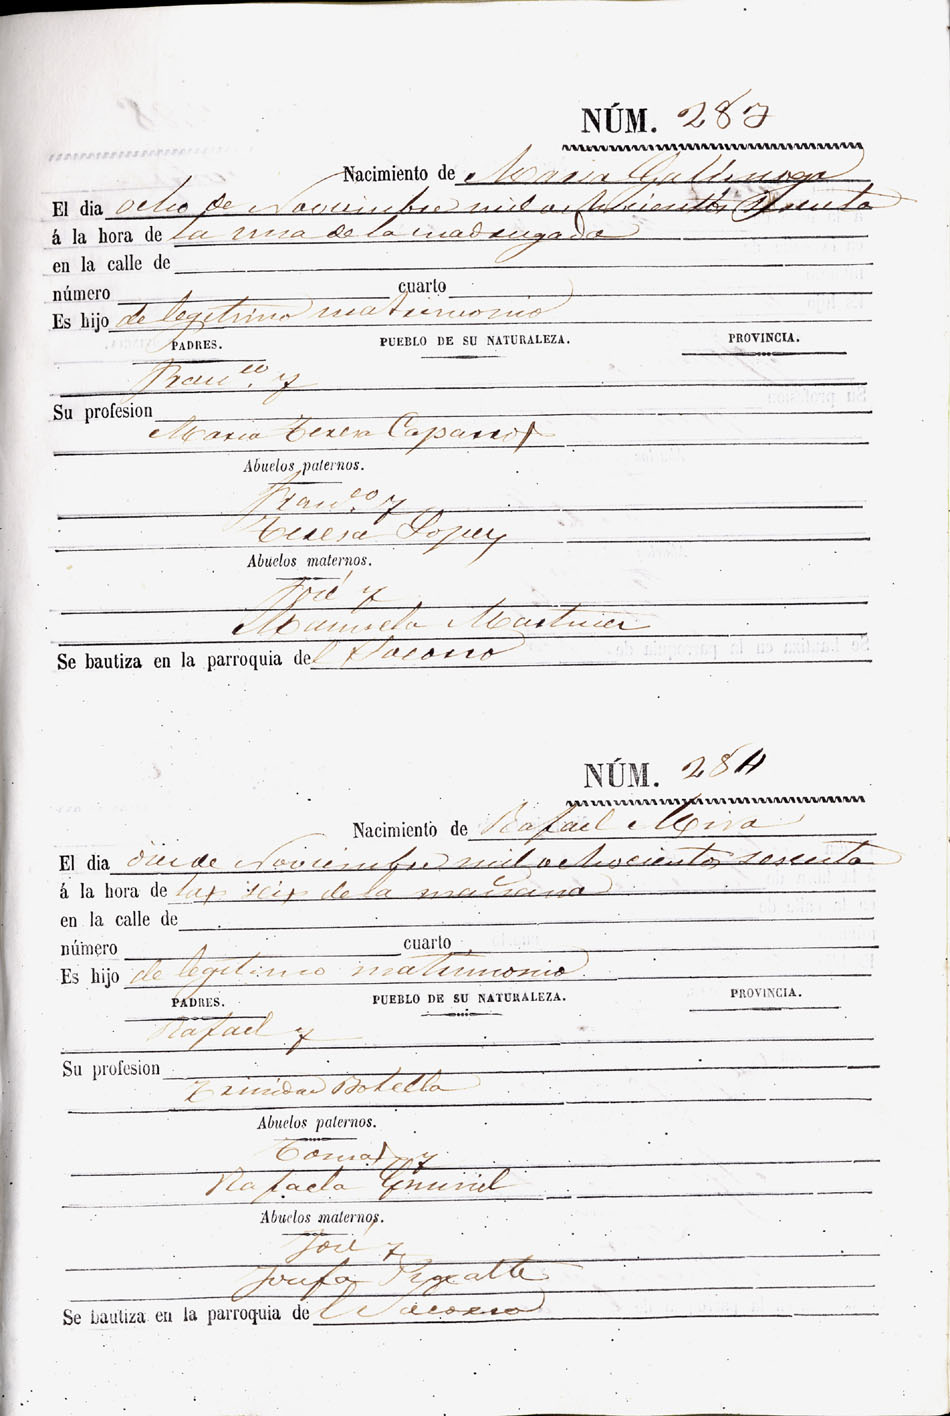 NÚM. 283
Nacimiento de Maria
El dia ocho de Noviembre mil ochocientos sesenta
á la hora de la una de la madrugada
en la calle de
número cuarto
Es hijo de legitimo matrimonio
PADRES. PUEBLO DE SU NATURALEZA. PROVINCIA.
Fran.co y
Su profesion
Maria Teresa Caparros
Abuelos paternos.
Fran.co y
Teresa Lopez
Abuelos maternos.
José y
Manuela Martinez
Se bautiza en la parroquia del Socorro
NÚM. 284
Nacimiento de Rafael Mira
El dia diez de Noviembre mil ochocientos sesenta
á la hora de las seis de la mañana
en la calle de
número cuarto
Es hijo de legitimo matrimonio
PADRES. PUEBLO DE SU NATURALEZA. PROVINCIA.
Rafael y
Su profesion
Trinidad Botella
Abuelos paternos.
Tomas y
Rafaela
Abuelos maternos.
José y
Josefa
Se bautiza en la parroquia del Socorro